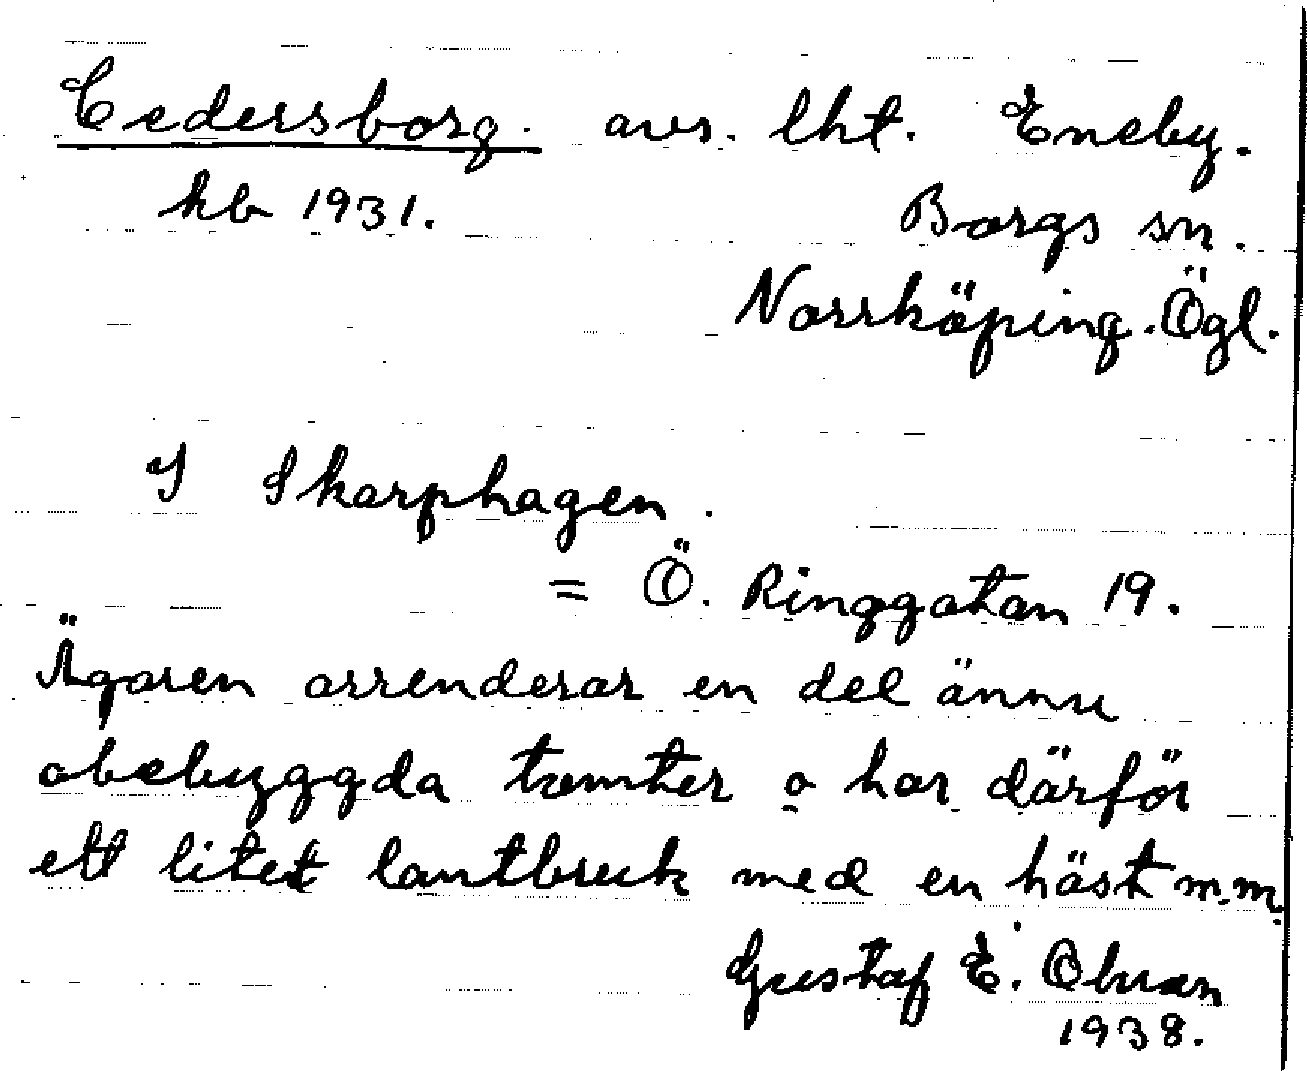 Cedersborg. avs. lht. Eneby.
hb 1931. Borgs sn.
Norrköping. Ögl.
I Skarphagen.
= Ö. Ringgatan 19.
Ägaren arrenderar en del ännu
obebyggda tomter o har därför
ett litet lantbruk med en häst m.m.
Gustaf E.
1938.